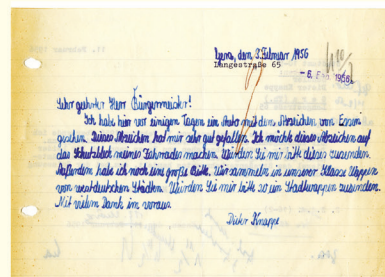 Gera, den 3. Februar 1956
Langestraße 65
- 6. Feb. 1956
Sehr geehrter Herr Bürgermeister!
Ich habe hier vor einigen Tagen ein Auto mit dem Abzeichen von Essen
gesehen. Dieses Abzeichen hat mir sehr gut gefallen. Ich möchte dieses Abzeichen auf
das Schutzblech meines Fahrrades machen. Würden Sie mir bitte dieses zusenden.
Außerdem habe ich noch eine große Bitte. Wir sammeln in unserer Klasse Wappen
von westdeutschen Städten. Würden Sie mir bitte so ein Stadtwappen zusenden.
Mit vielem Dank im voraus.
Dieter Knappe